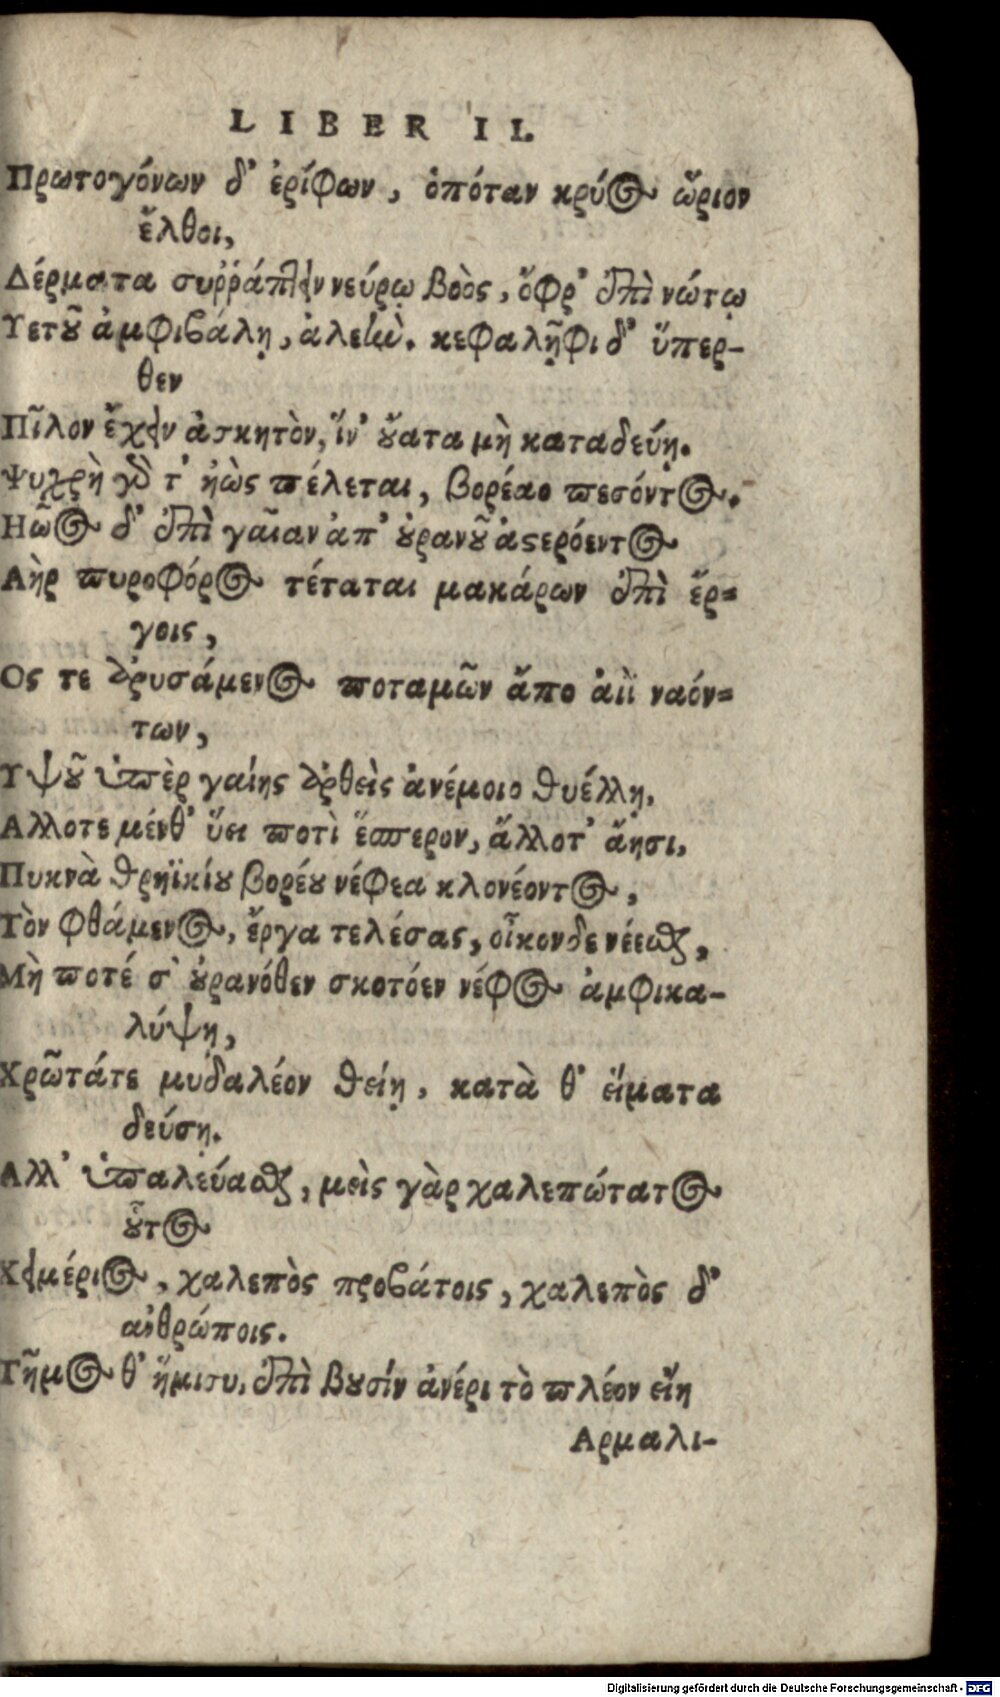 LIBER II.
Πρωτογόνων δ' ἐρίφων, ὁπόταν κρύος ὥριον
ἔλθοι,
Δέρματα συῤῥάπτειν νεύρῳ βοὸς, ὄφρ' ἐπὶ νώτῳ
Υετοῦ ἀμφιβάλῃ, ἀλεὼ. κεφαλῆφι δ' ὕπερ-
θεν
Πῖλον ἔχειν ἀσκητὸν, ἵν' οὔατα μὴ καταδεύῃ.
Ψυχρὴ γάρ τ' ἠὼς πέλεται, βορέαο πεσόντος.
Ηῶος δ' ἐπὶ γαῖαν ἀπ' οὐρανοῦ ἀστερόεντος
Αὴρ πυροφόρος τέταται μακάρων ἐπὶ ἔρ-
γοις,
Ος τε ἀρυσάμενος ποταμῶν ἄπο αἰὲι ναόν-
των,
Υψοῦ ὑπὲρ γαίης ἀρθεὶς ἀνέμοιο θυέλλῃ,
Αλλοτε μένθ' ὕει ποτὶ ἕσπερον, ἄλλοτ' ἄησι,
Πυκνὰ θρηϊκίου βορέου νέφεα κλονέοντος,
Τὸν φθάμενος, ἔργα τελέσας, οἶκον δε νέεσθαι,
Μὴ ποτέ σ' οὐρανόθεν σκοτόεν νέφος ἀμφικα-
λύψῃ,
Χρῶτάτε μυδαλέον θείῃ, κατὰ θ' εἵματα
δεύσῃ.
Αλλ' ὑπαλεύασθαι, μεὶς γὰρ χαλεπώτατος
οὗτος
Χειμέριος, χαλεπὸς προβάτοις, χαλεπὸς δ'
ἀνθρώποις.
Τῆμος θ' ἥμισυ, ἐπὶ βουσίν ἀνέρι τὸ πλέον εἴη
Αρμαλι-
Digitalisierung gefördert durch die Deutsche Forschungsgemeinschaft - DFG